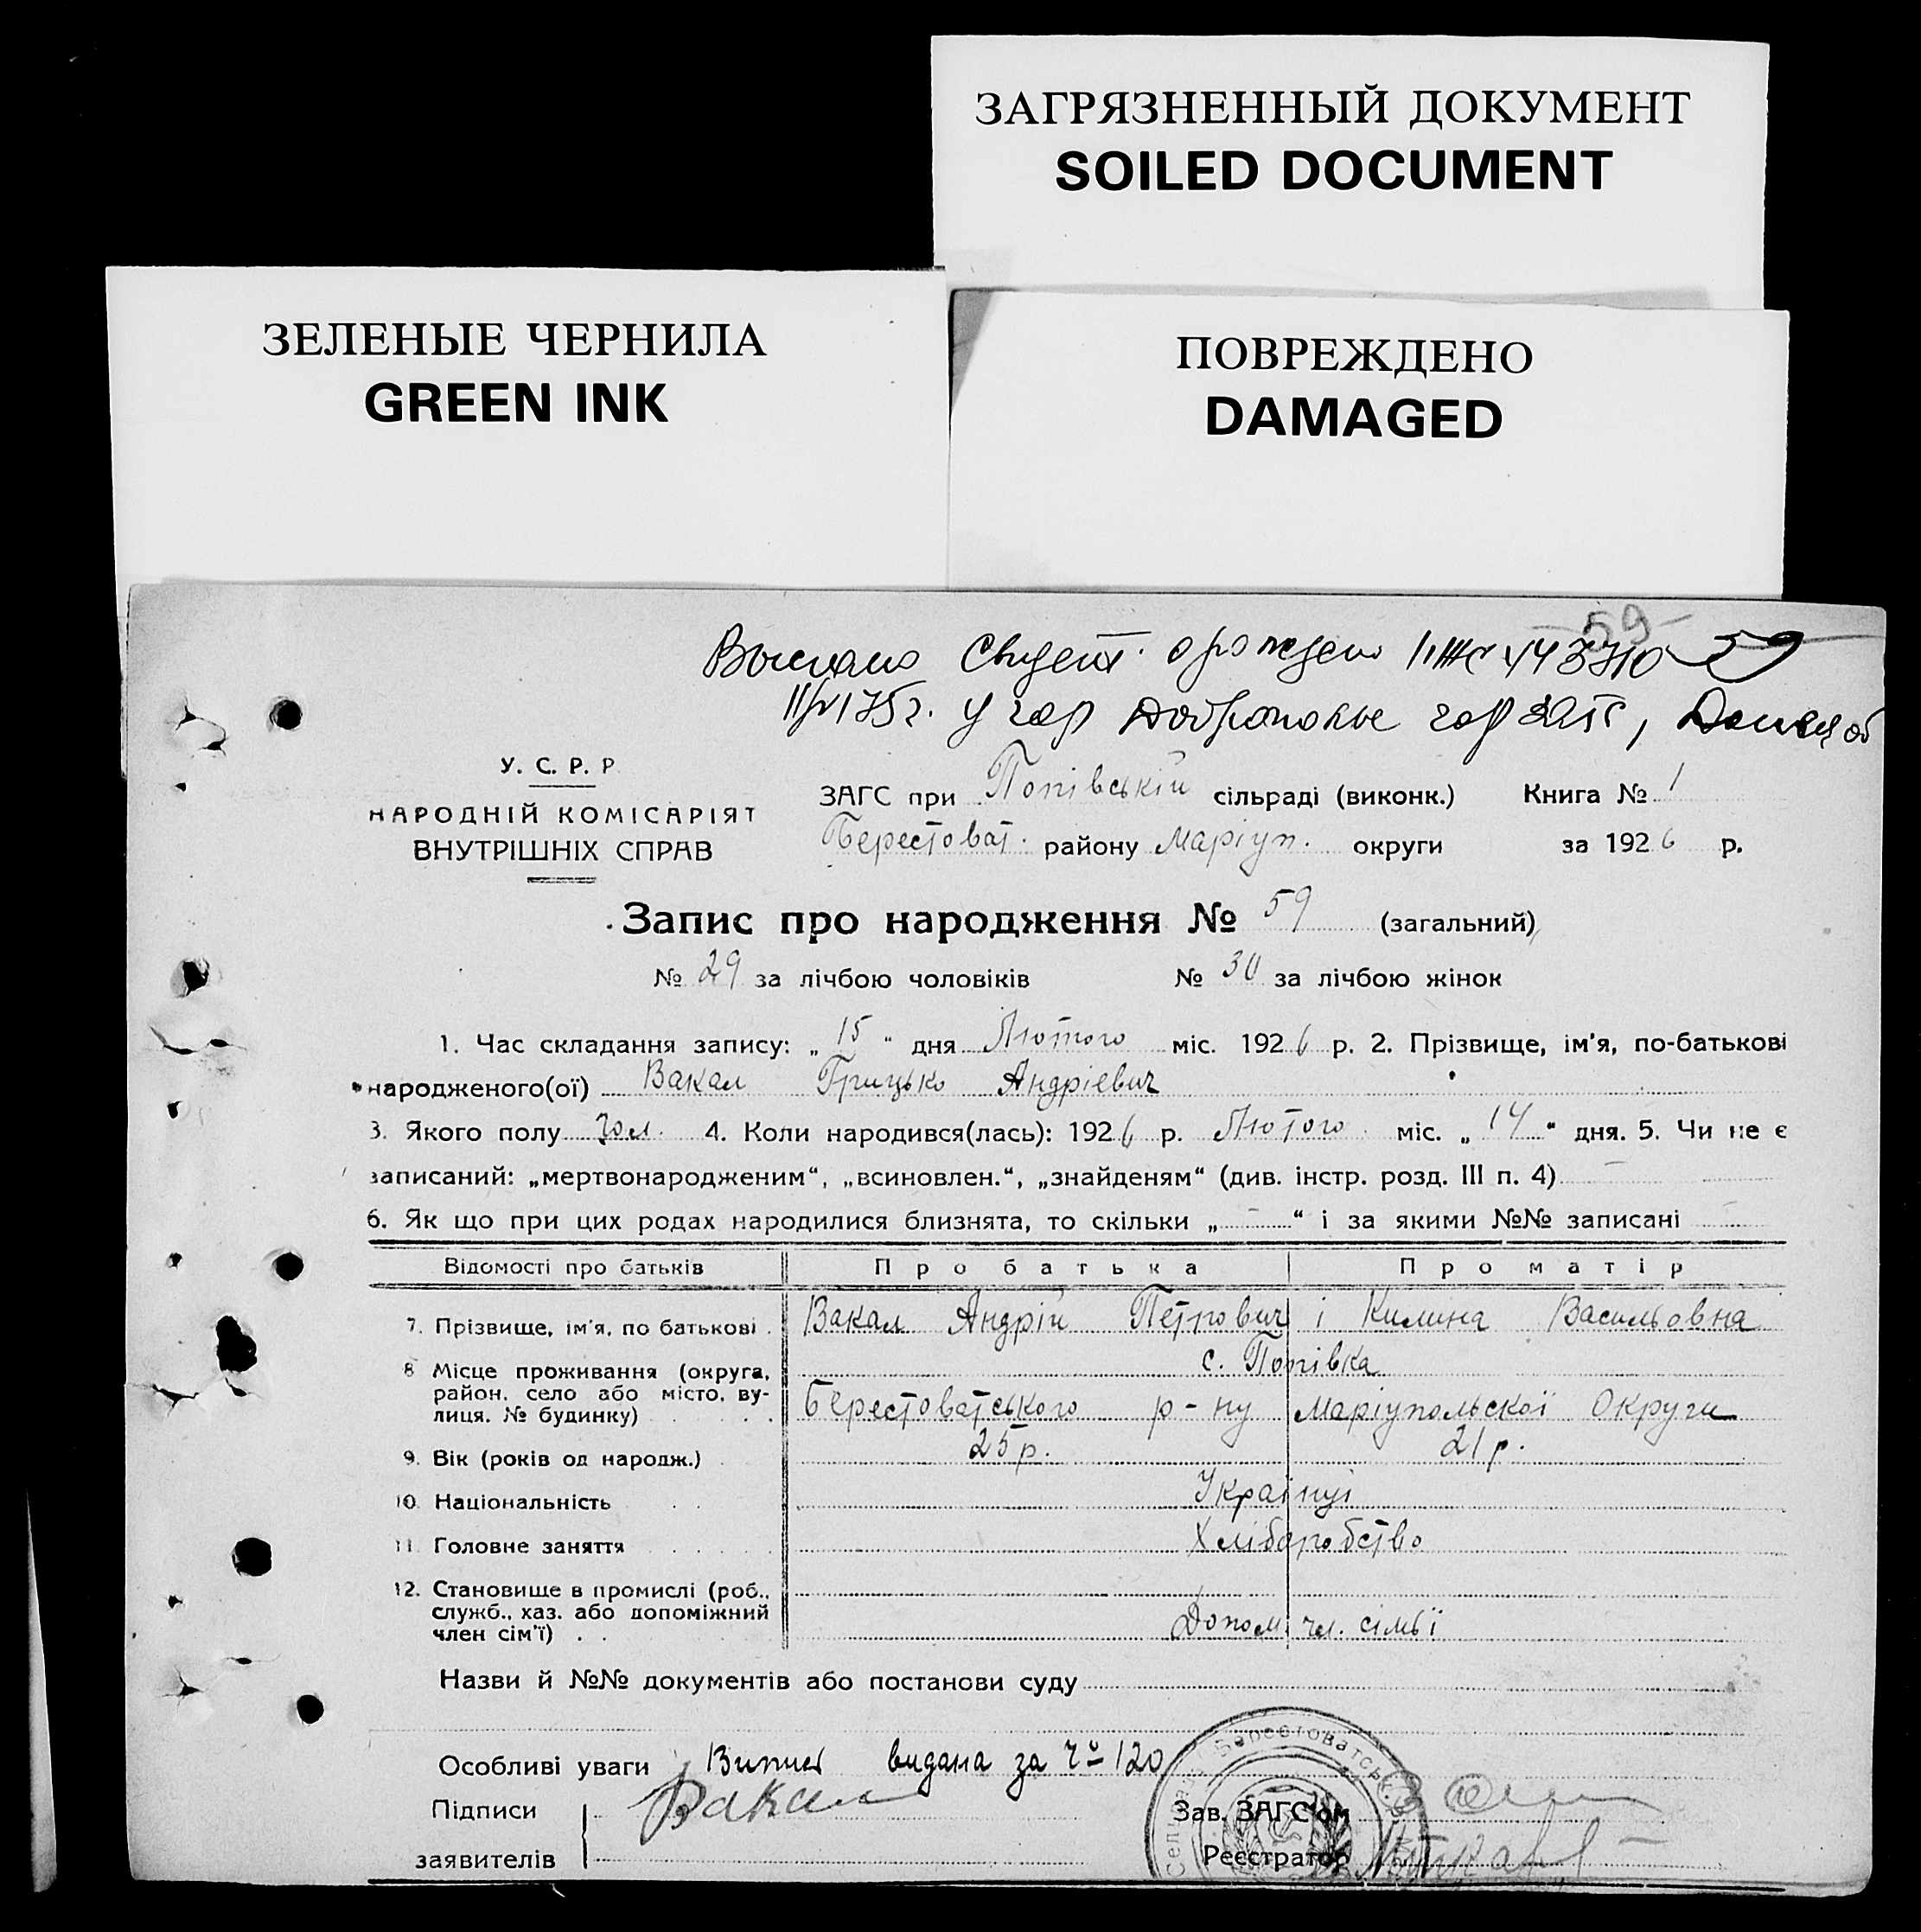 ЗАГРЯЗНЕННЫЙ ДОКУМЕНТ
SOILED DOCUMENT
ЗЕЛЕНЫЕ ЧЕРНИЛА
GREEN INK
ПОВРЕЖДЕНО
DAMAGED
59
59
у гор загс,
У. С. Р. Р
НАРОДНІЙ КОМІСАРІЯТ
ВНУТРІШНІХ СПРАВ
ЗАГС при Попівській сільраді (виконк.) Книга № 1
Берестоват. району Маріуп. округи за 1926 р.
Запис про народження № 59 (загальний)
№ 29 за лічбою чоловіків № 30 за лічбою жінок
1. Час складання запису: „15“ дня Лютого міс. 1926 р. 2. Прізвище, ім'я, по-батькові
народженого(ої) Вакал Грицько Андріевич
3. Якого полу чол. 4. Коли народився(лась): 1926 р. Лютого міс. „14“ дня. 5. Чи не є
записаний: „мертвонародженим“, „всиновлен.“, „знайденям“ (див. інстр. розд. III п. 4) —
6. Як що при цих родах народилися близнята, то скільки „—“ і за якими №№ записані —
Відомості про батьків Про батька Про матір
7. Прізвище, ім'я, по батькові Вакал Андрій Петрович і Килина Васильовна
8 Місце проживання (округа, с. Попівка
район, село або місто, ву-
лиця, № будинку) Берестоватського р-ну Маріупольскої Округи
9. Вік (років од народж.) 25 р. 21 р.
10. Національність Українці
11. Головне заняття Хліборобство
12. Становище в промислі (роб.,
служб., хаз. або допоміжний
член сім'ї) Допом. чл. сімьї
Назви й №№ документів або постанови суду
Особливі уваги видана за № 120
Підписи Вакал
заявителів
Зав. ЗАГС'ом
Реєстратор
Берестоватськ